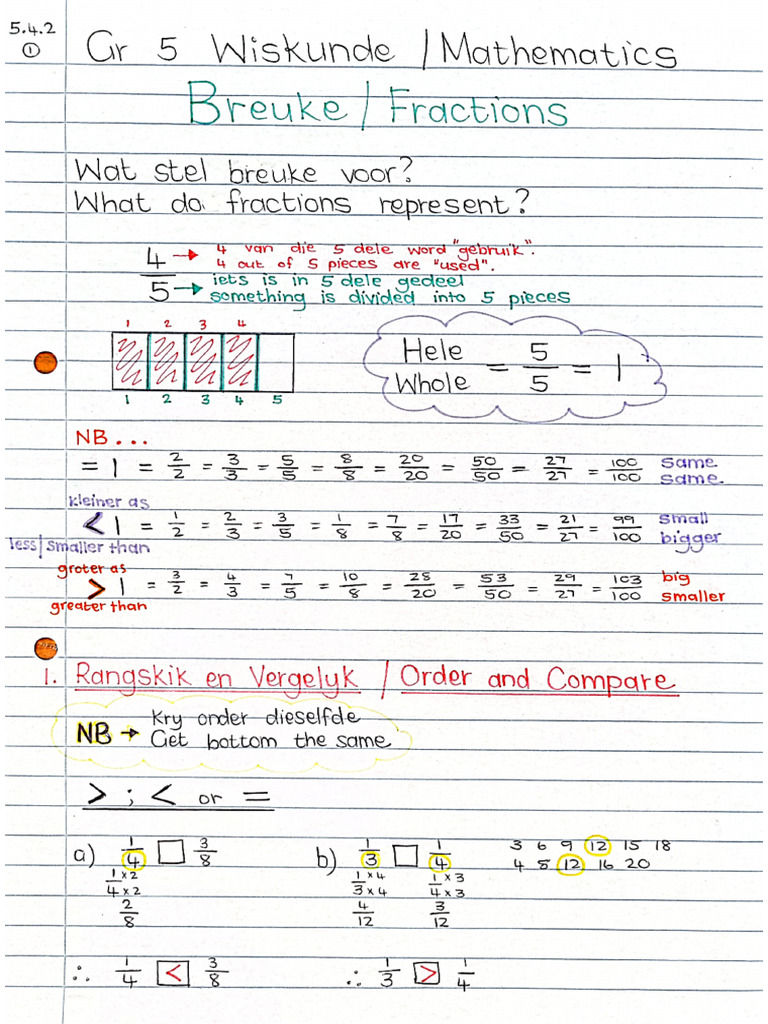 5.4.2
①
Gr 5 Wiskunde / Mathematics
Breuke / Fractions
Wat stel breuke voor?
What do fractions represent?
4 → 4 van die 5 dele word "gebruik".
4 out of 5 pieces are "used".
5 → iets is in 5 dele gedeel
something is divided into 5 pieces
1 2 3 4
1 2 3 4 5
Hele / Whole = 5/5 = 1
NB...
= 1 = 2/2 = 3/3 = 5/5 = 8/8 = 20/20 = 50/50 = 27/27 = 100/100 same same
kleiner as
< 1 = 1/2 = 2/3 = 3/5 = 1/8 = 7/8 = 17/20 = 33/50 = 21/27 = 99/100 small bigger
less/smaller than
groter as
> 1 = 3/2 = 4/3 = 7/5 = 10/8 = 28/20 = 53/50 = 29/27 = 103/100 big smaller
greater than
1. Rangskik en Vergelyk / Order and Compare
NB → Kry onder dieselfde
Get bottom the same
> ; < or =
a) 1/4 □ 3/8
1×2/4×2
2/8
∴ 1/4 < 3/8
b) 1/3 □ 1/4
3 6 9 12 15 18
4 8 12 16 20
1×4/3×4 1×3/4×3
4/12 3/12
∴ 1/3 > 1/4